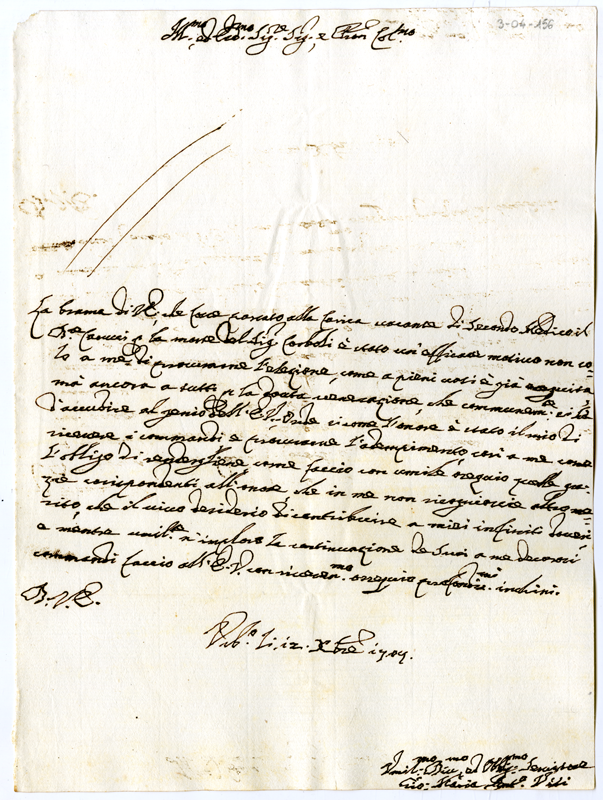 3-04-156
Ill.mo et Ecc.mo Sig.re Sig. e Pron Col.mo
La brama di V.E. che fosse portato alla carica vacante di Secondo Medico il
D.re per la morte del Sig. Corboli è stato un'efficace motivo non so-
lo a me di procurarne l'elezione, come a pieni voti è già seguita,
mà ancora a tutti per la dovuta venerazione, che communem.e
d'accudire al genio dell'E.V. Onde si come l'onore è stato il mio di
ricevere i commandi e procurarne l'adempimento, così a me come
l'obligo di rendergliene come faccio con umile ossequio quelle gra-
zie corispondenti all'onore, che in me non riconoscie altro me-
rito, che il vivo desiderio di contribuire a miei infiniti doveri
e mentre umilm.e n'imploro la continuazione de Suoi a me decorosi
commandi faccio all'E.V. con riveren.mo ossequio profondis.mi inchini.
D. V. E.
Urb.o li 12 Xbre 1709.
Umil.mo Div.mo et Obl.mo Servitore
Gio. Maria Ant.o Viti